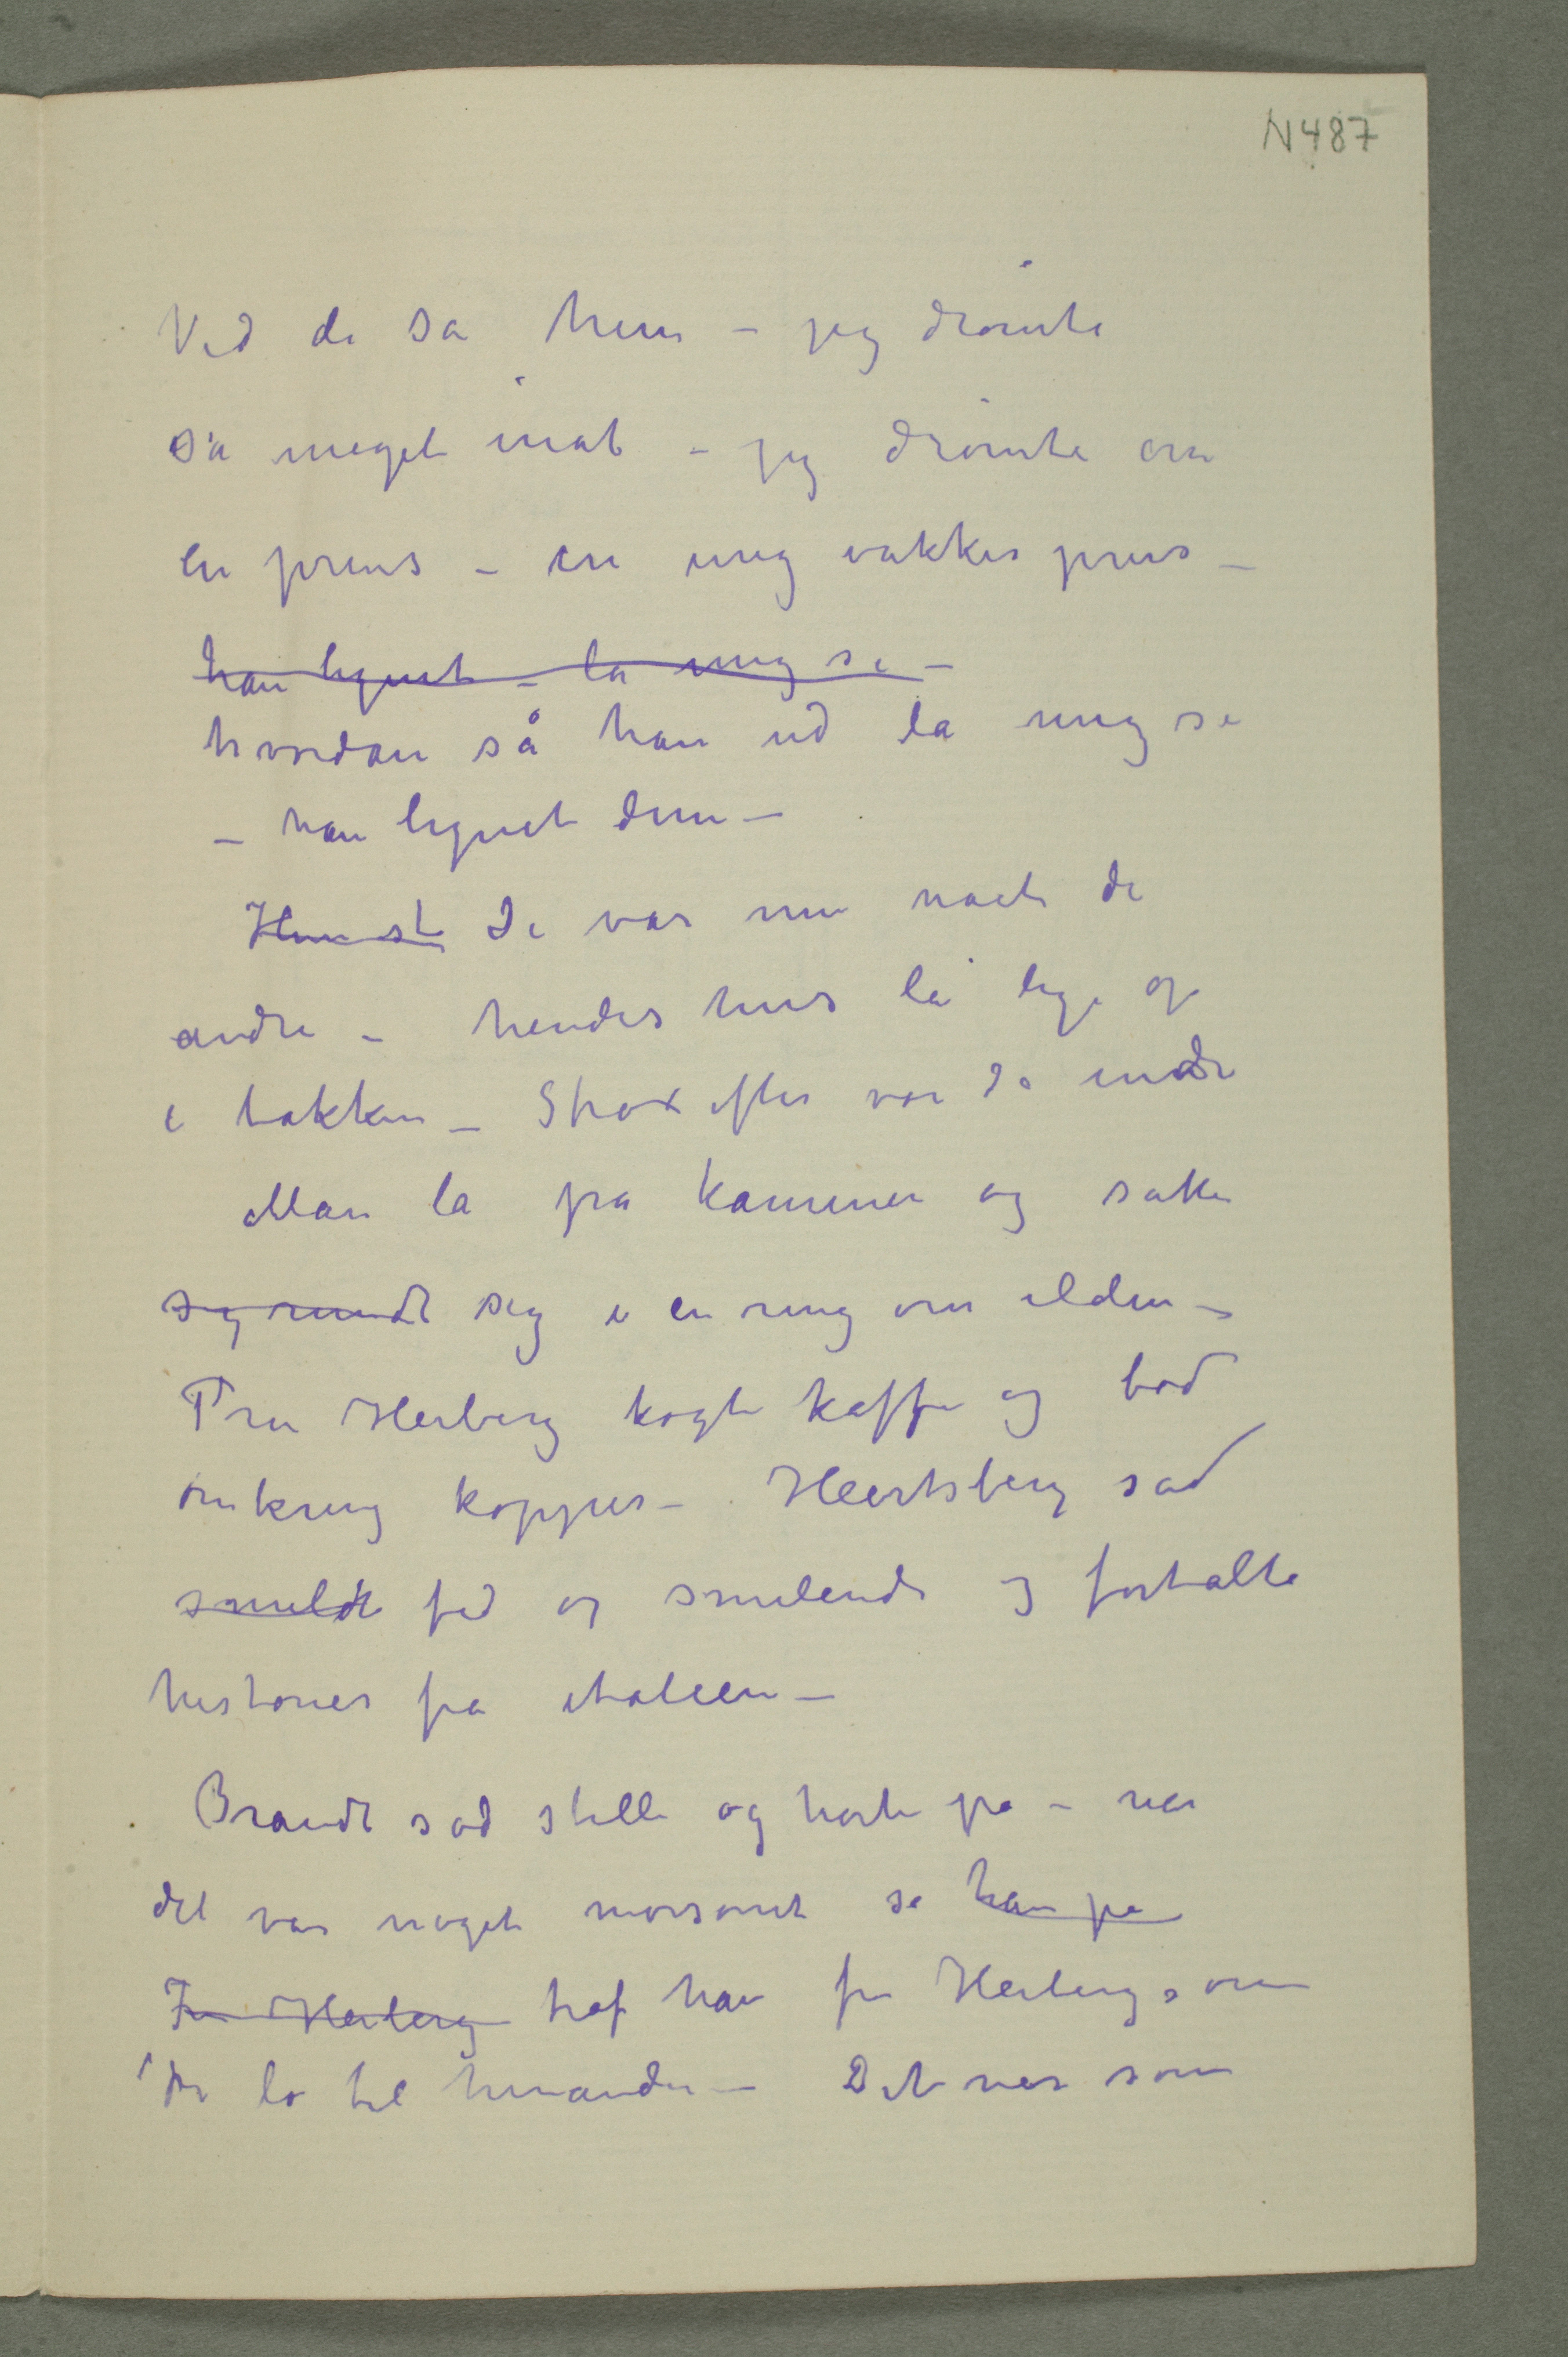 N487
Ved de sa hun – jeg drømte
så meget inat – jeg drømte om
en prins – en ung vakker prins –
han lignet – la mig se –
hvordan så han ud la mig se
– han lignet dem –
Hun st De var nu nået de
andre – hendes hus lå lige op
i bakken – Strax efter var de inde
Man la på kaminen og satte
sig rundt sig i en ring om ilden –
Fru Heiberg kogte kaffe og bød
omkring kopper – Heertsberg sad
smilte fed og smilende og fortalte
historier fra italien –
Brandt sad stille og hørte på – når
det var noget morsomt så han på
Fru Heiberg traf han fru Heibergs øine
de lo til hinanden – Det var som